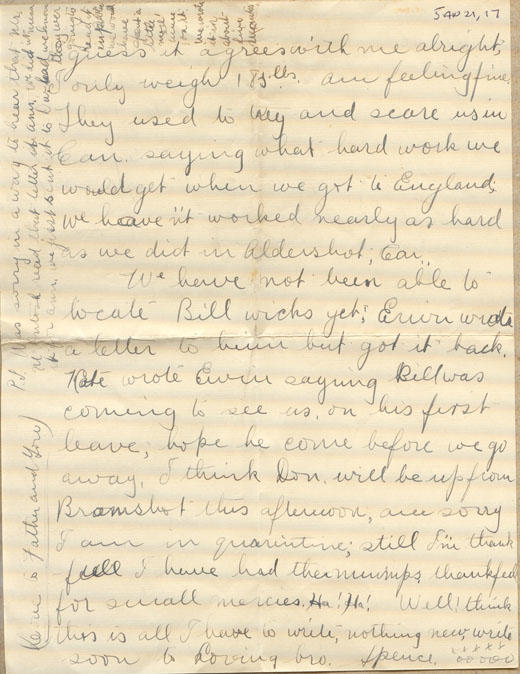 5 AP 21, 17
guess it agrees with me alright,
I only weigh 183 lbs. am feeling fine.
They used to try and scare us in
Can. saying what hard work we
would get when we got to England,
we haven't worked nearly as hard
as we did in Aldershot, Can.
We have not been able to
locate Bill Wicks yet; Erwin wrote
a letter to him but got it back.
Kate wrote Erwin saying Bill was
coming to see us, on his first
leave, hope he come before we go
away. I think Don. will be up from
Bramshot this afternoon, am sorry
I am in quarintine; still I'm thank
full I have had the mumps thankful
for small mercies. Ha! Ha! Well I think
this is all I have to write, nothing new, write
soon to Loving bro. Spence. xxxxx
ooooo
(Keine to Father and You)
P.S. was sorry in a way to hear that
read that letter of